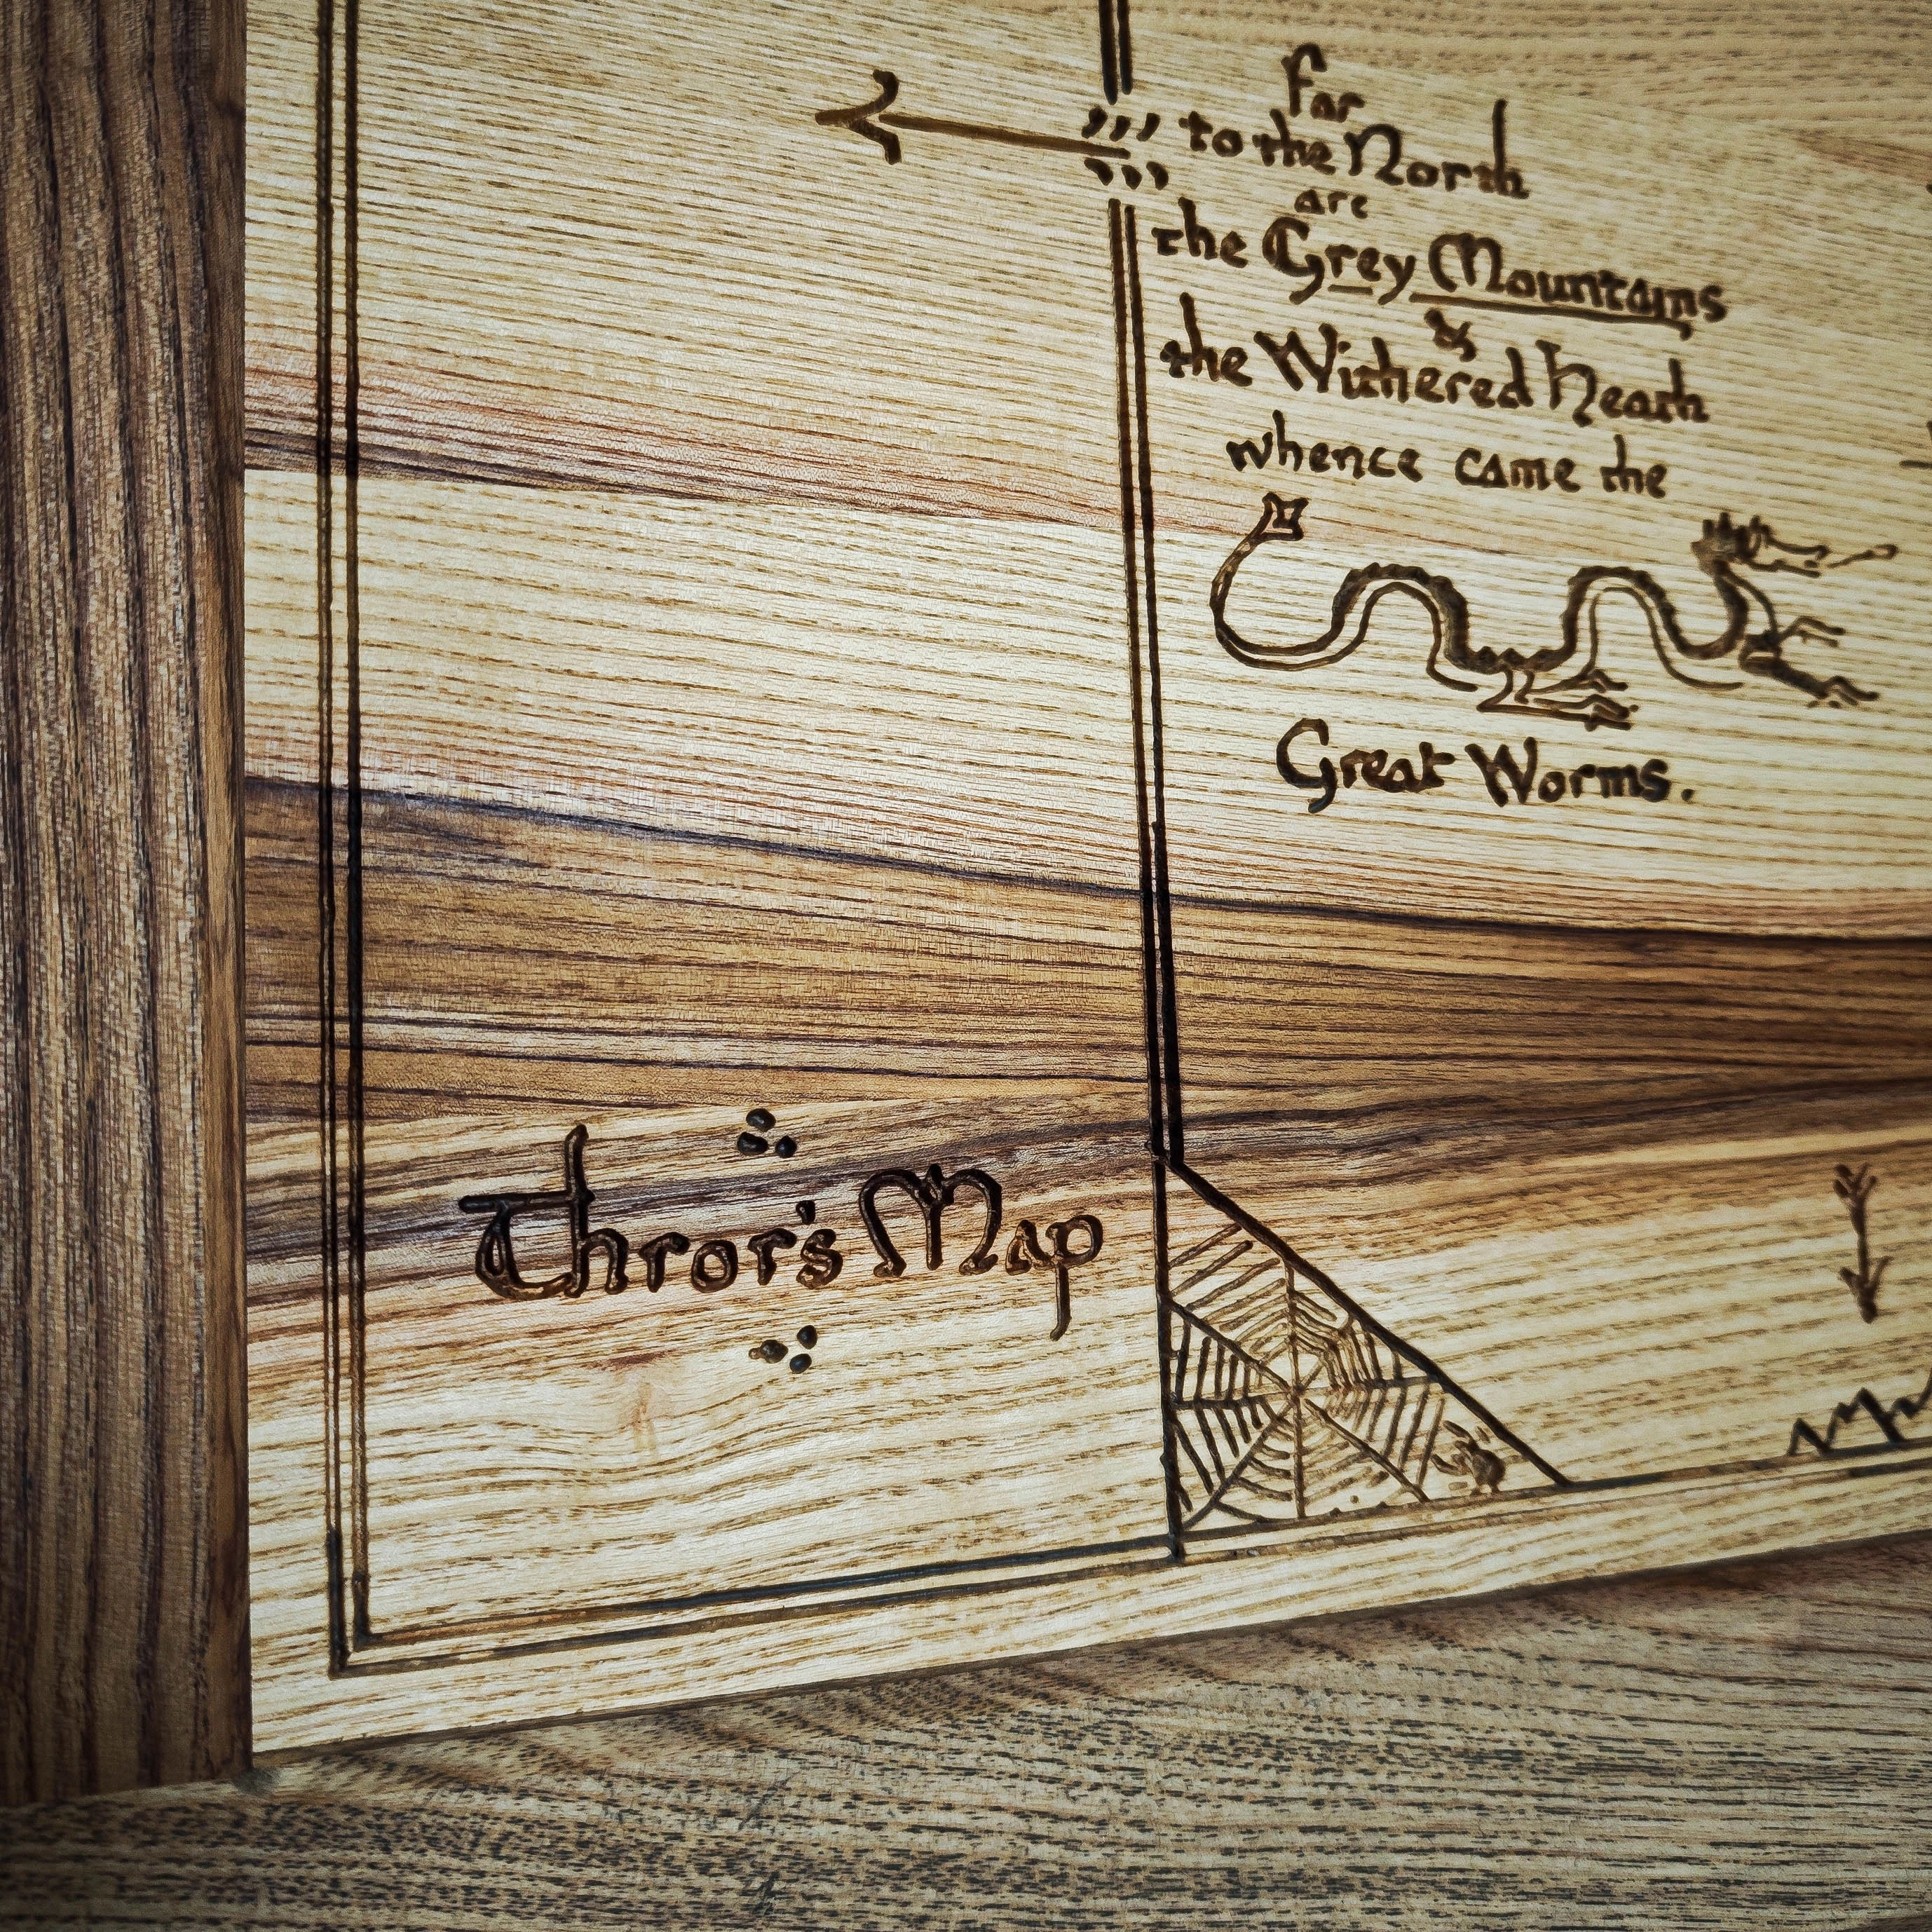 Far
to the North
are
the Grey Mountains
&
the Withered Heath
whence came the
Great Worms.
Thror's Map